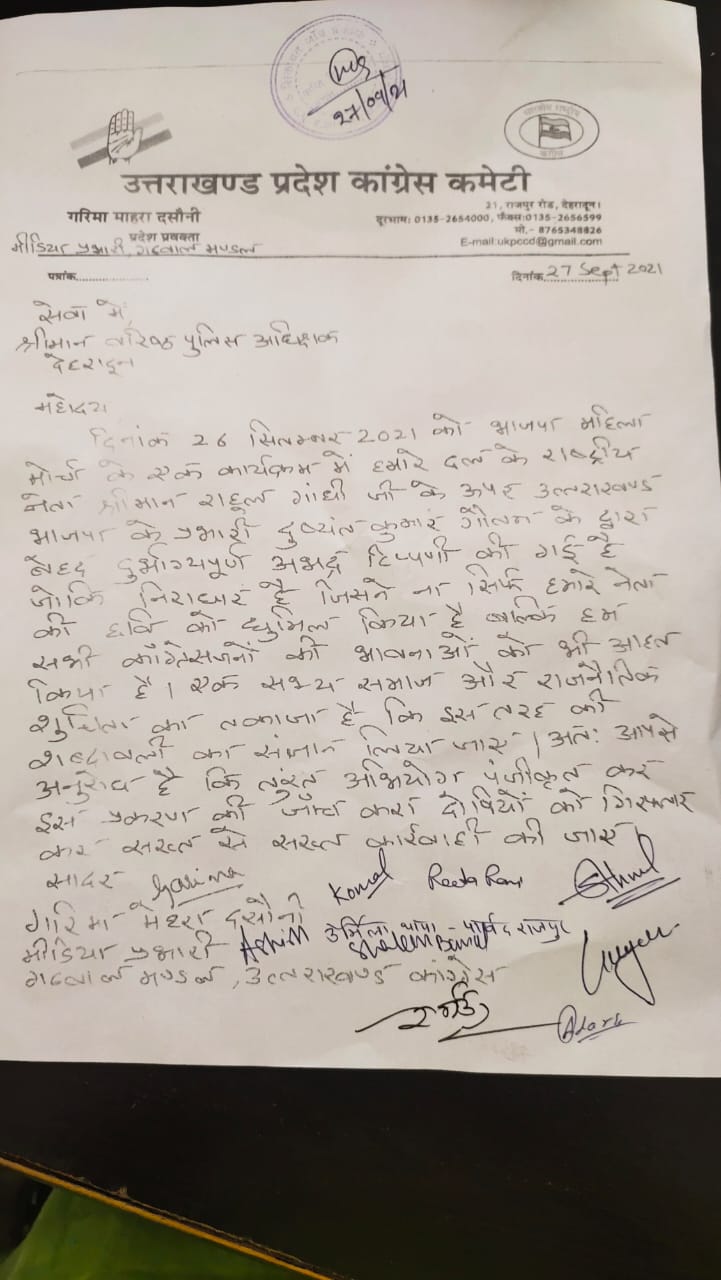 27/09/21
भारतीय राष्ट्रीय
कांग्रेस
उत्तराखण्ड प्रदेश कांग्रेस कमेटी
21, राजपुर रोड, देहरादून।
गरिमा माहरा दसौनी
दूरभाष: 0135-2654000, फैक्स:0135-2656599
प्रदेश प्रवक्ता
मो.- 8765348826
मीडिया प्रभारी, गढवाल मण्डल
E-mail:ukpccd@gmail.com
पत्रांक.....................
दिनांक 27 Sept 2021
सेवा में,
श्रीमान वरिष्ठ पुलिस अधिक्षक
देहरादून
महोदय
दिनांक 26 सितम्बर 2021 को भाजपा महिला
मोर्चा के एक कार्यक्रम में हमारे दल के राष्ट्रीय
नेता श्रीमान राहुल गांधी जी के ऊपर उत्तराखण्ड
भाजपा के प्रभारी दुष्यंत कुमार गौतम के द्वारा
बेहद दुर्भाग्यपूर्ण अभद्र टिप्पणी की गई है
जोकि निराधार है जिसने ना सिर्फ हमारे नेता
की छवि को धूमिल किया है बल्कि हम
सभी कांग्रेसजनों की भावनाओं को भी आहत
किया है। एक सभ्य समाज और राजनैतिक
शुचिता का तकाजा है कि इस तरह की
शब्दावली का संज्ञान लिया जाए। अतः आपसे
अनुरोध है कि तुरंत अभियोग पंजीकृत कर
इस प्रकरण की जांच करा दोषियों को गिरफ्तार
कर सख्त से सख्त कार्यवाही की जाए
सादर Garima Komal Reeta Rani
गरिमा मेहरा दसौनी
मीडिया प्रभारी Ashish उर्मिला थापा - पार्षद राजपुर
गढवाल मण्डल, उत्तराखण्ड कांग्रेस